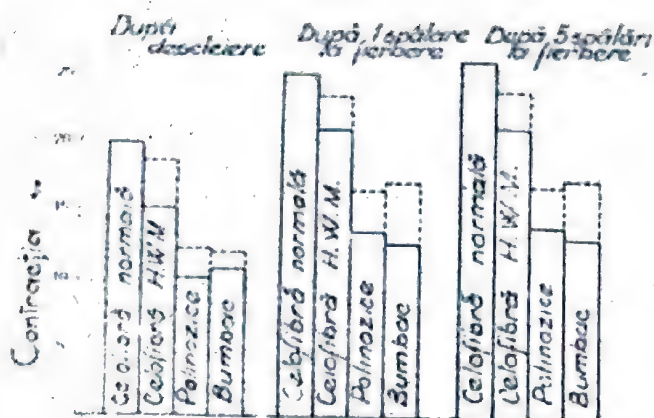 După
descleiere
După 1 spălare
la fierbere
După 5 spălări
la fierbere
20
Contracția
Celofibră normală
Celofibră H.W.M.
Polinozice
Bumbac
Celofibră normală
Celofibră H.W.M.
Polinozice
Bumbac
Celofibră normală
Celofibră H.W.M.
Polinozice
Bumbac